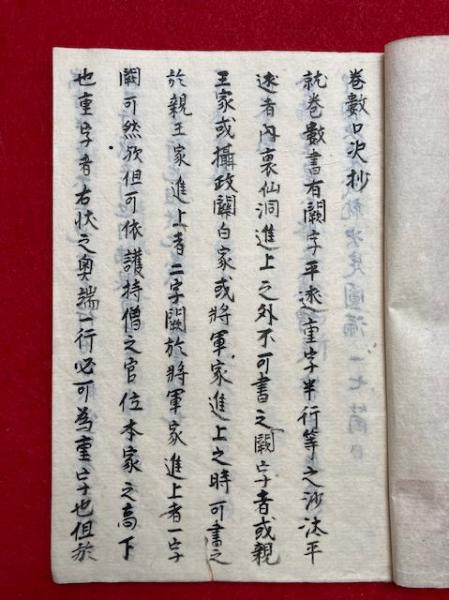 巻數口次抄
就巻數書有闕字平逑重字半行等之沙汰平
逑者内裏仙洞進上之外不可書之闕字者或親
王家或攝政關白家或將軍家進上之時可書之
於親王家進上者二字闕於將軍家進上者一字
闕可然欤但可依護持僧之官位本家之高下
也重字者右状之奥端一行必可為重字也但於